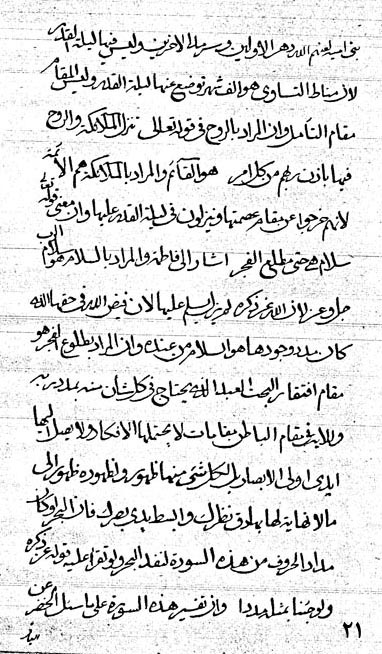 بني امية لعنهم الله دهر الاولين وسرمد الاخرين وليس فيها ليلة القدر
لان مناط التساوي هو الف شهر توضع عنها ليلة القدر وليس المقام
مقام التأمل وان المراد بالروح في قوله تعالى تنزل الملائكة والروح
فيها باذن ربهم من كل امر هو القائم والمراد بالملائكة هم الأئمة
لانهم خرجوا عن مقابر عصمتها وينزلون في ليلة القدر عليها وان معنى قوله
سلام هي حتى مطلع الفجر اشار الى فاطمة والمراد بالسلام هو سلام الرب
جل وعز لان الله عز ذكره لم يزل يسلم عليها لان فيض الله في حقها الله
كان بدء وجودها هو السلام من عنده وان المراد بطلوع الفجر هو
مقام افتقار البحت العبد الذي يحتاج في كل شأن منه بمدد ربه
وللاية في مقام الباطن مقامات لا يحتملها الافكار ولا يصل اليها
ايدي اولي الابصار بل لكل شيء منها ظهور ولظهوره ظهور الى
ما لا نهاية لها بها دق نظرك والبسط يدي بصرك فان البحر لو كان
مداد الحروف من هذه السورة لنفد البحر ولو تقرأ عليه قوله عز ذكره
ولو جئنا بمثله مددا وان تفسير هذه السورة على ما سئل الخضر عن
٢١